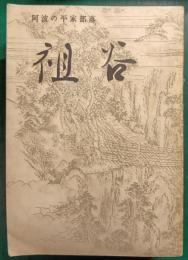 阿波の平家部落
祖谷